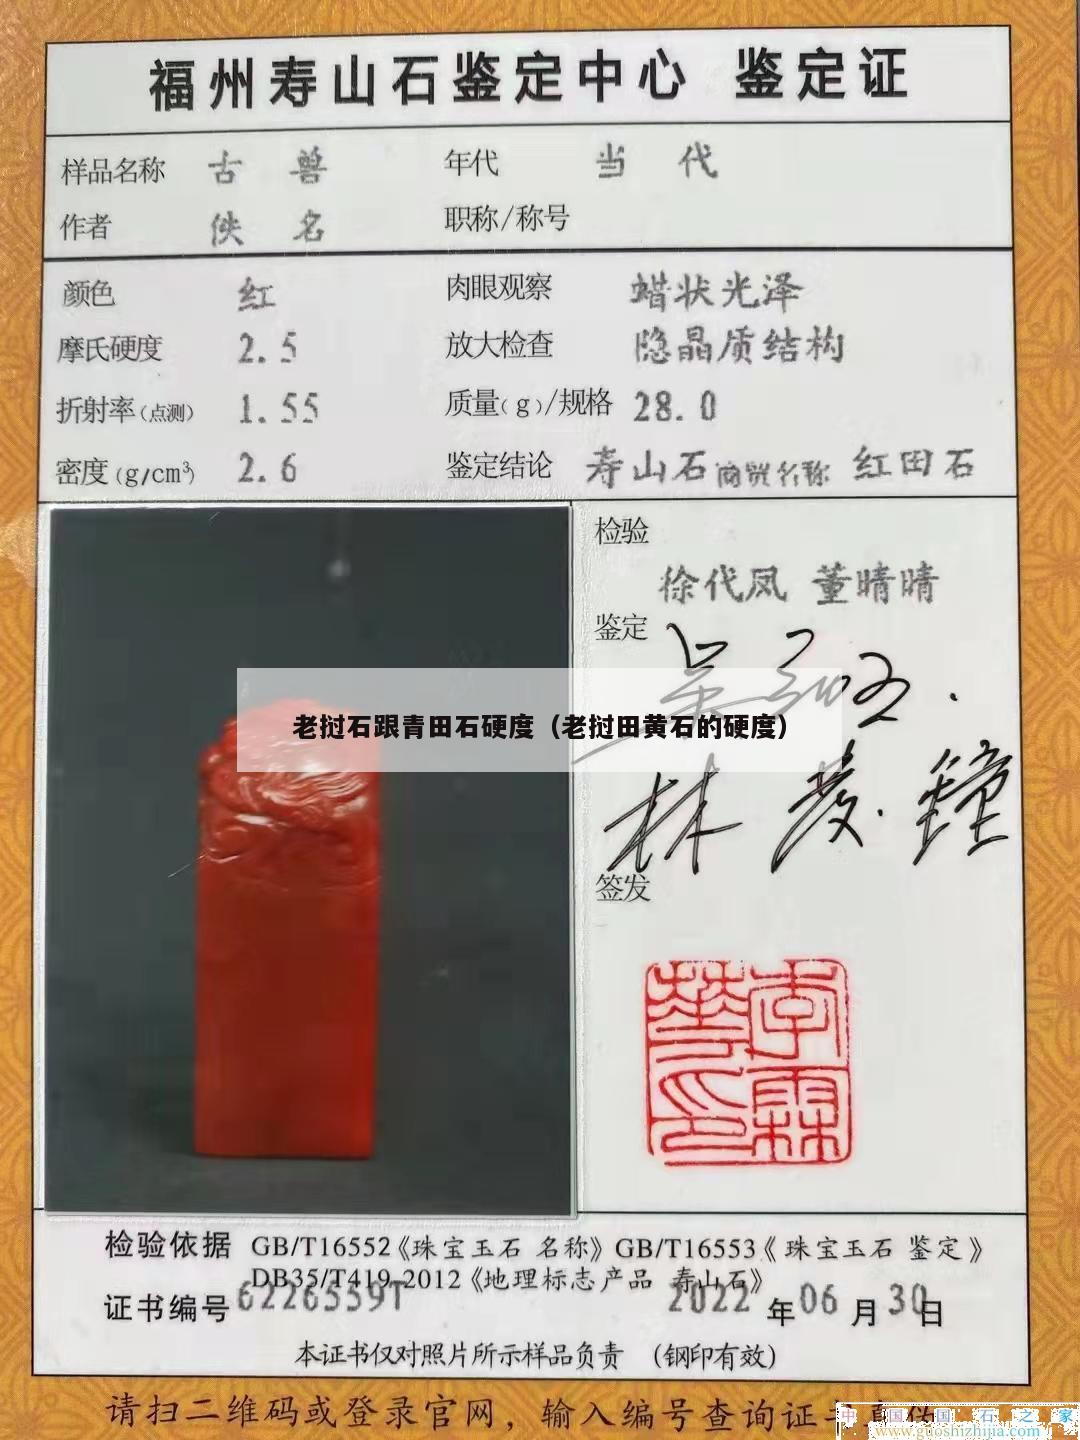 福州寿山石鉴定中心 鉴定证
样品名称 古 兽 年代 当 代
作者 佚 名 职称/称号
颜色 红 肉眼观察 蜡状光泽
摩氏硬度 2.5 放大检查 隐晶质结构
折射率(点测) 1.55 质量(g)/规格 28.0
密度(g/cm³) 2.6 鉴定结论 寿山石 商贸名称 红田石
检验
徐代凤 董晴晴
鉴定
老挝石跟青田石硬度（老挝田黄石的硬度）
林
签发
检验依据 GB/T16552《珠宝玉石 名称》GB/T16553《珠宝玉石 鉴定》
DB35/T419-2012《地理标志产品 寿山石》
证书编号 6226559T 2022 年 06 月 30 日
本证书仅对照片所示样品负责 （钢印有效）
请扫二维码或登录官网，输入编号查询证书真伪
中国国石之家
www.guoshizhijia.com